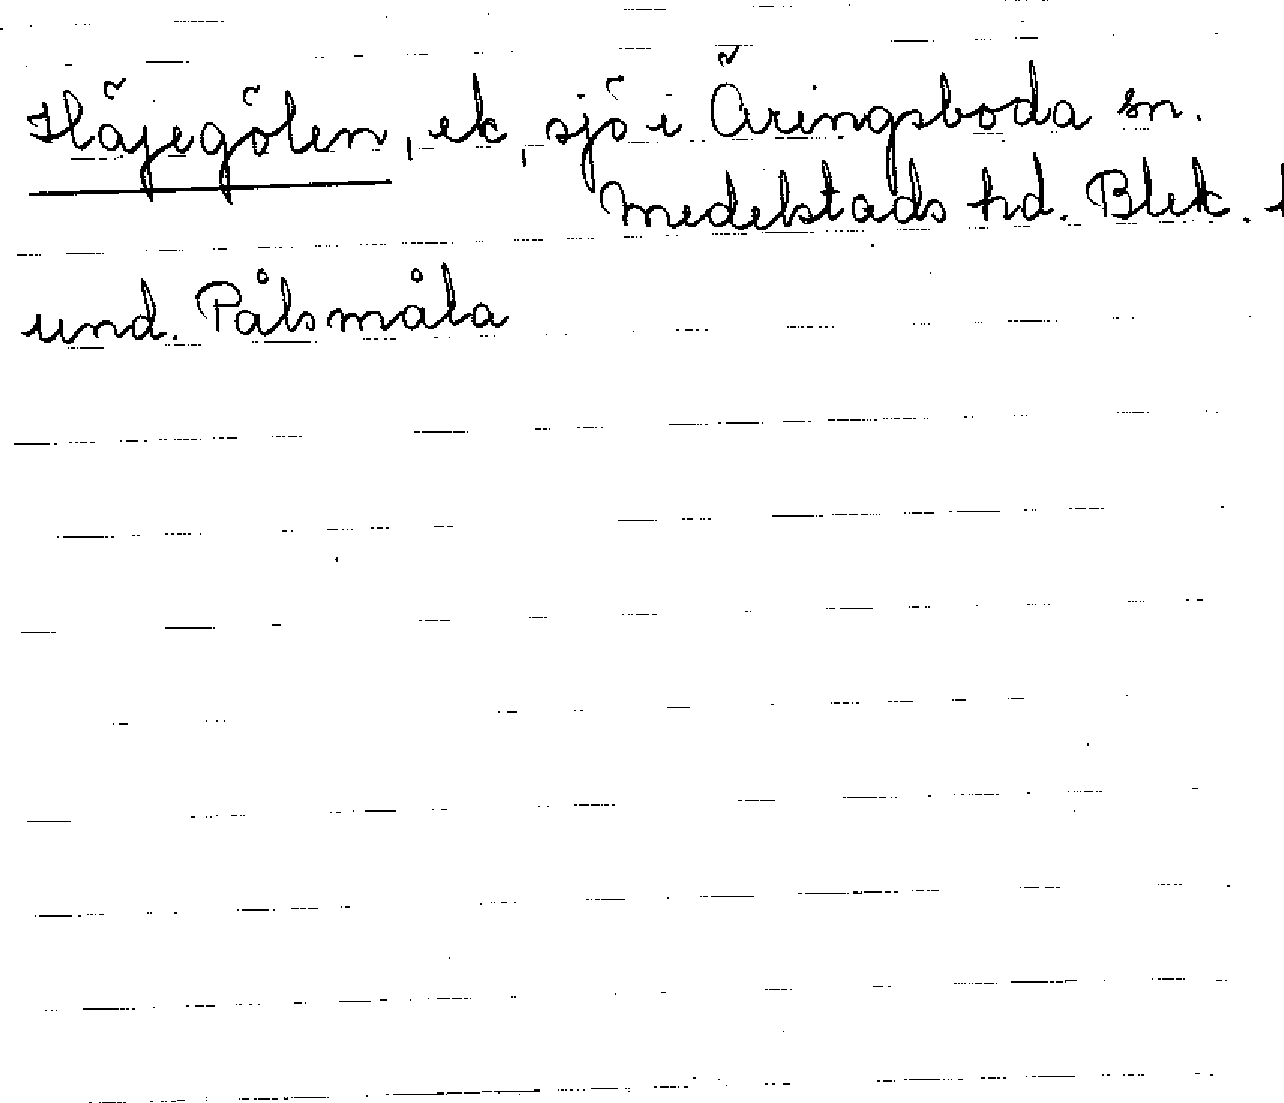 Häjegölen, ek, sjö i Äringsboda sn.
Medelstads hd. Blek. l
und. Pålsmåla